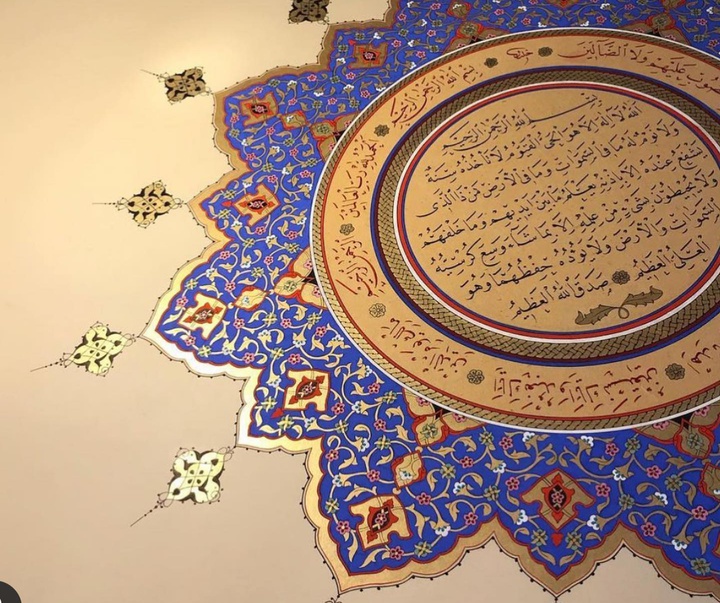 بِسْمِ اللهِ الرَّحْمٰنِ الرَّحِيمِ
اَللهُ لَا اِلٰهَ اِلَّا هُوَ الْحَيُّ الْقَيُّومُ لَا تَأْخُذُهُ سِنَةٌ
وَلَا نَوْمٌ لَهُ مَا فِي السَّمٰوَاتِ وَمَا فِي الْاَرْضِ مَنْ ذَا الَّذِي
يَشْفَعُ عِنْدَهُ اِلَّا بِاِذْنِهِ يَعْلَمُ مَا بَيْنَ اَيْدِيهِمْ وَمَا خَلْفَهُمْ
وَلَا يُحِيطُونَ بِشَيْءٍ مِنْ عِلْمِهِ اِلَّا بِمَا شَاءَ وَسِعَ كُرْسِيُّهُ
السَّمٰوَاتِ وَالْاَرْضَ وَلَا يَؤُدُهُ حِفْظُهُمَا وَهُوَ
الْعَلِيُّ الْعَظِيمُ
صَدَقَ اللهُ الْعَظِيمُ
بِسْمِ اللهِ الرَّحْمٰنِ الرَّحِيمِ
اَلْحَمْدُ لِلّٰهِ رَبِّ الْعَالَمِينَ
اَلرَّحْمٰنِ الرَّحِيمِ
مَالِكِ يَوْمِ الدِّينِ
اِيَّاكَ نَعْبُدُ وَاِيَّاكَ نَسْتَعِينُ
عَلَيْهِمْ وَلَا الضَّالِّينَ